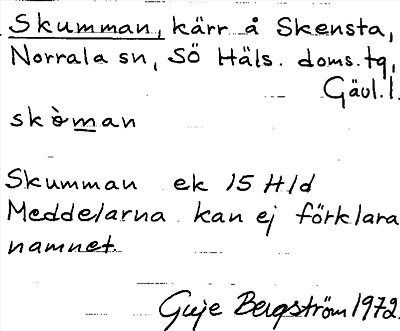 Skumman, kärr å Skensta,
Norrala sn, SÖ Häls. doms.tg,
Gävl.l.
skòman
Skumman ek 15 Hld
Meddelarna kan ej förklara
namnet.
Guje Bergström 1972.